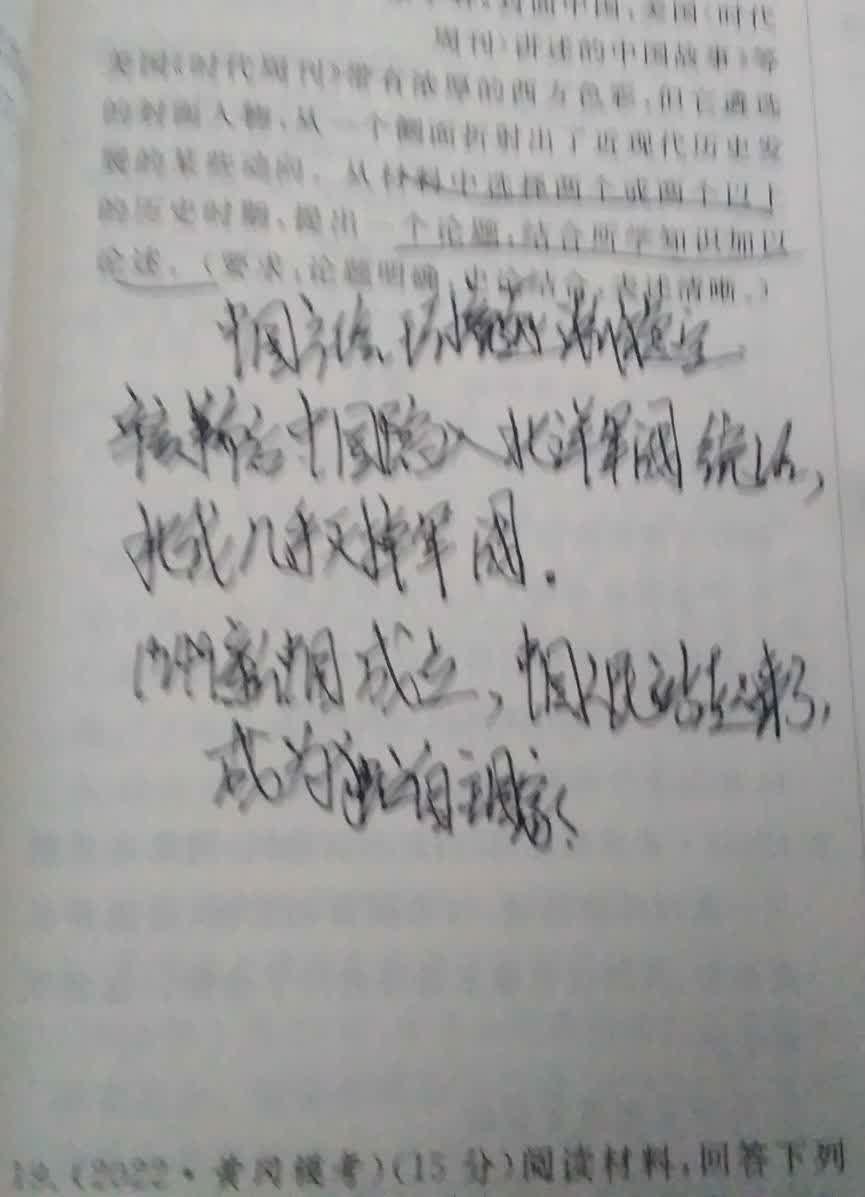 封面中国:美国《时代
周刊》讲述的中国故事》等
美国《时代周刊》带有浓厚的西方色彩,但它遴选
的封面人物,从一个侧面折射出了近现代历史发
展的某些动向。从材料中选择两个或两个以上
的历史时期,提出一个论题,结合所学知识加以
论述。(要求:论题明确,史论结合,表述清晰。)
中国
辛亥革命后中国陷入北洋军阀统治,
北伐几乎灭掉军阀.
1949新中国成立,中国人民站起来了,
成为独立自主国家
19.(2022·黄冈模考)(15分)阅读材料,回答下列